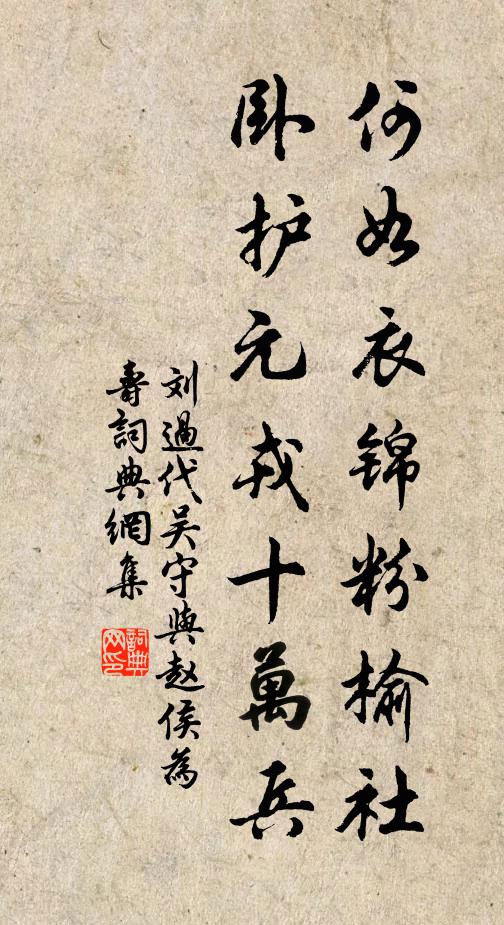 何如衣锦粉榆社
卧护元戎十萬兵
刘過代吴守與赵侯為
壽詞典網集
詞典网印